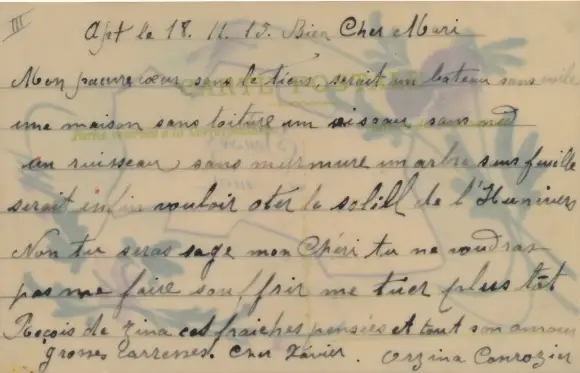 III
Apt le 18. 11. 15. Bien Cher Mari
Mon pauvre cœur sans le tiens, serait un bateau sans voile
une maison sans toiture un oiseau sans nid
un ruisseau sans murmure un arbre sans feuille
serait enfin vouloir oter le soliel de l'Hunivers
Non tu seras sage mon Chéri tu ne voudras
pas me faire souffrir me tuer plus tôt
Reçois de Zina ces fraiches pensées et tout son amour
grosses carresses. Cher Xavier. Orzina Conrozier
CARTE POSTALE